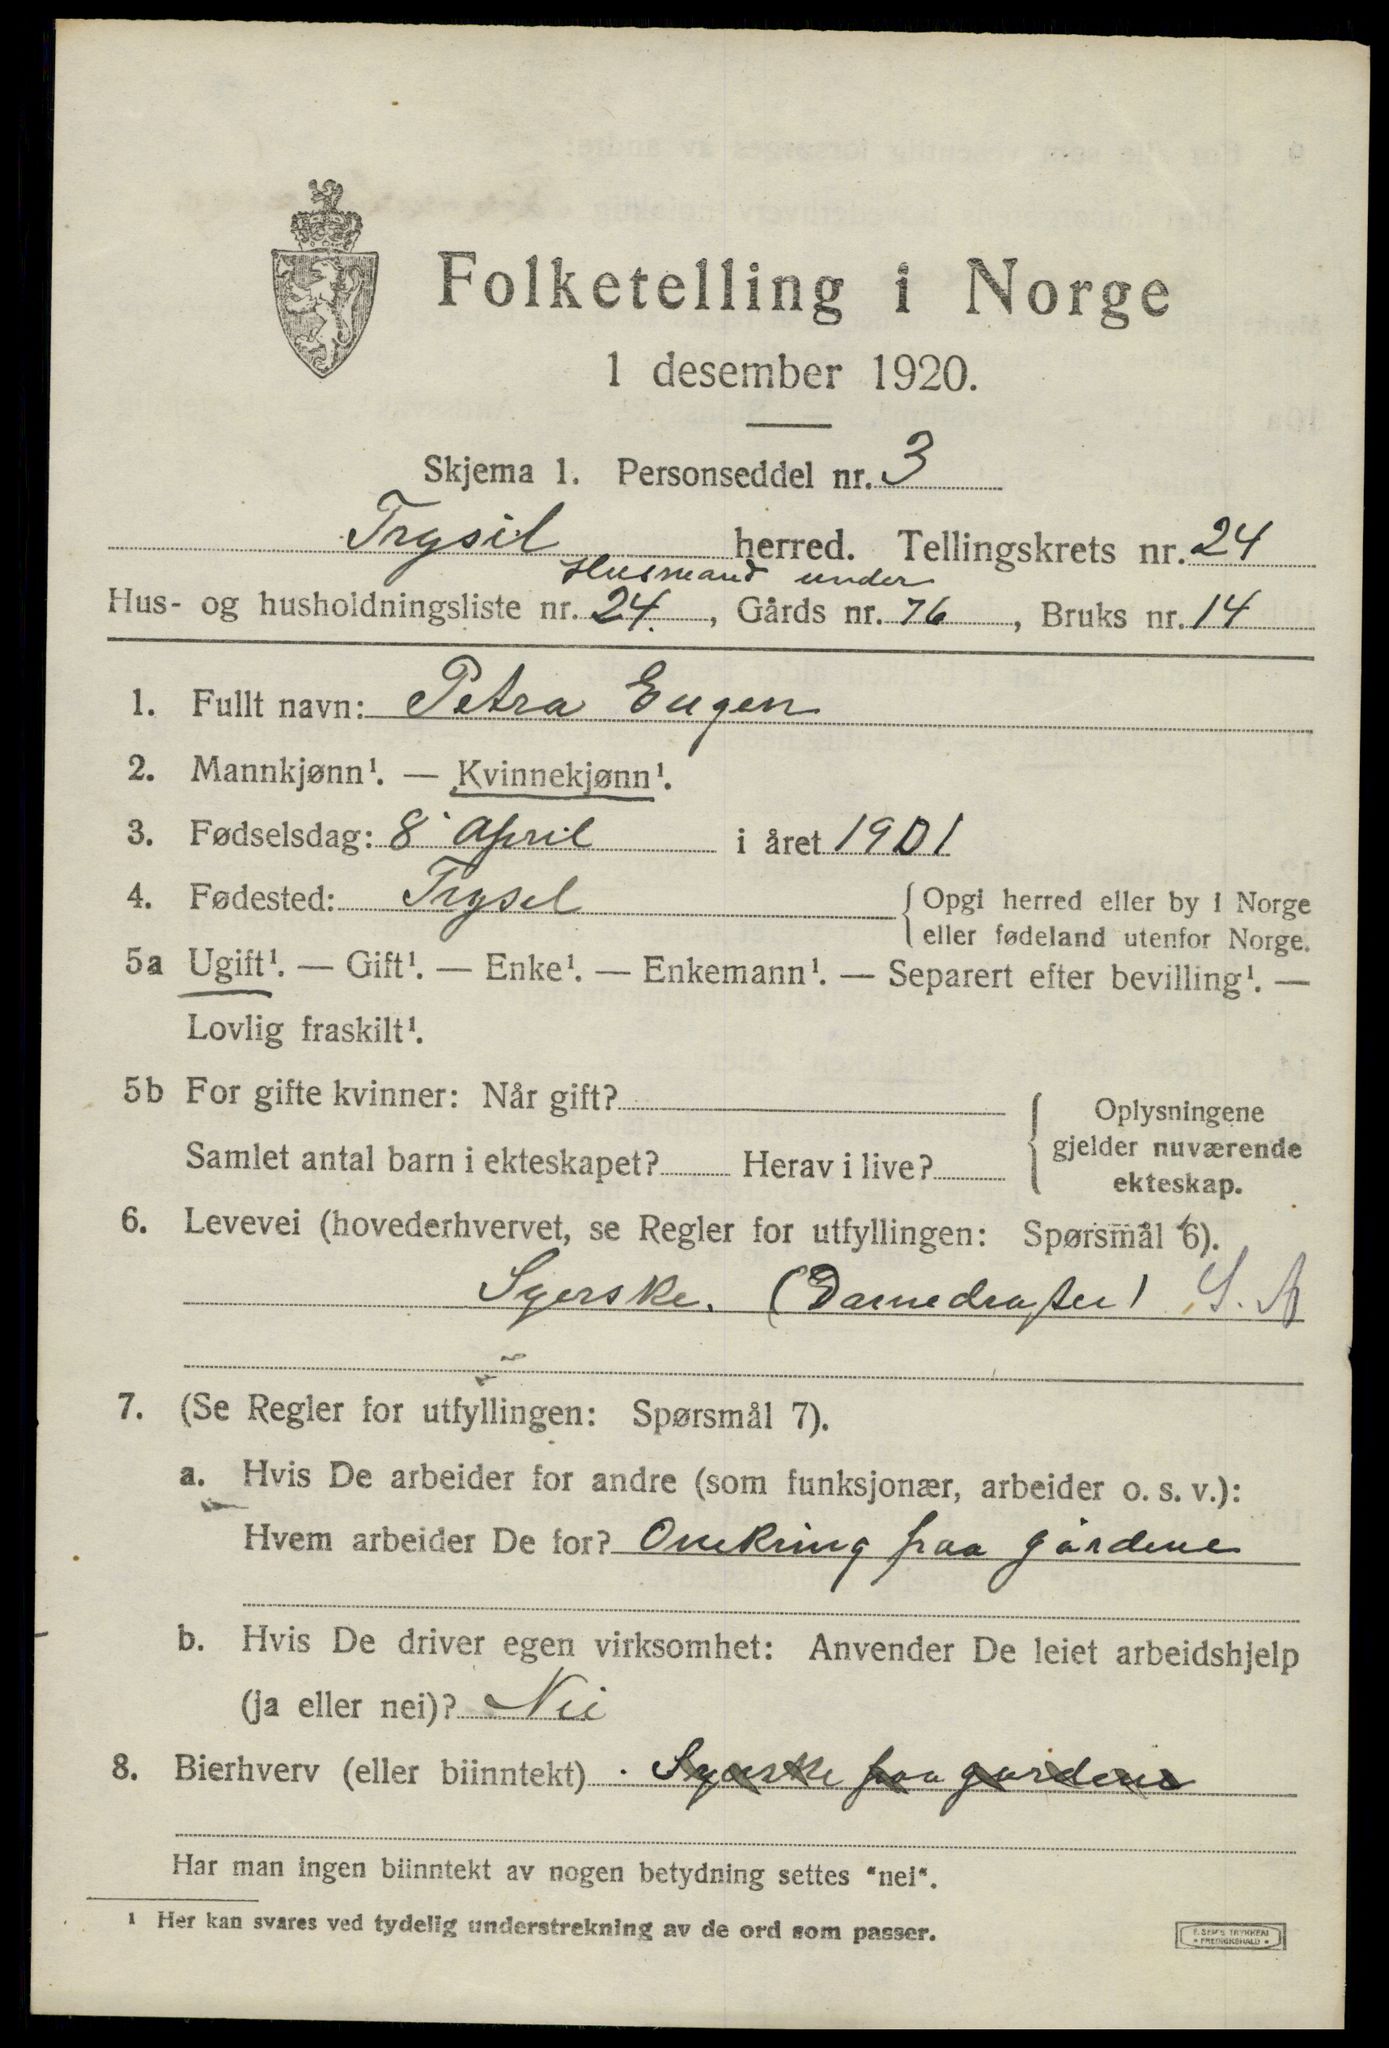 Folketelling i Norge
1 desember 1920.
Skjema 1. Personseddel nr. 3
Trysil herred. Tellingskrets nr. 24
Husmand under
Hus- og husholdningsliste nr. 24. , Gårds nr. 76 , Bruks nr. 14
1. Fullt navn: Petra Eugen
2. Mannkjønn¹. — Kvinnekjønn¹.
3. Fødselsdag: 8 April i året 1901
4. Fødested: Trysil { Opgi herred eller by i Norge
eller fødeland utenfor Norge.
5a Ugift¹. — Gift¹. — Enke¹. — Enkemann¹. — Separert efter bevilling¹. —
Lovlig fraskilt¹.
5b For gifte kvinner: Når gift?
Samlet antal barn i ekteskapet? Herav i live?
Oplysningene
gjelder nuværende
ekteskap.
6. Levevei (hovederhvervet, se Regler for utfyllingen: Spørsmål 6).
Syerske. (Damedragter) S. A
7. (Se Regler for utfyllingen: Spørsmål 7).
a. Hvis De arbeider for andre (som funksjonær, arbeider o. s. v.):
Hvem arbeider De for? Omkring paa gårdene
b. Hvis De driver egen virksomhet: Anvender De leiet arbeidshjelp
(ja eller nei)? Nei
8. Bierhverv (eller biinntekt) Syerske paa gardene
Har man ingen biinntekt av nogen betydning settes "nei".
¹ Her kan svares ved tydelig understrekning av de ord som passer.
E. SEM'S TRYKKERI
• FREDRIKSHALD •